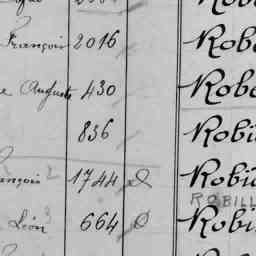 François 2016 Robe
e Auguste 430 Robe
836 Robi
ançois 2 1744 Robi
ROBILL
Léon 3 664 Robi